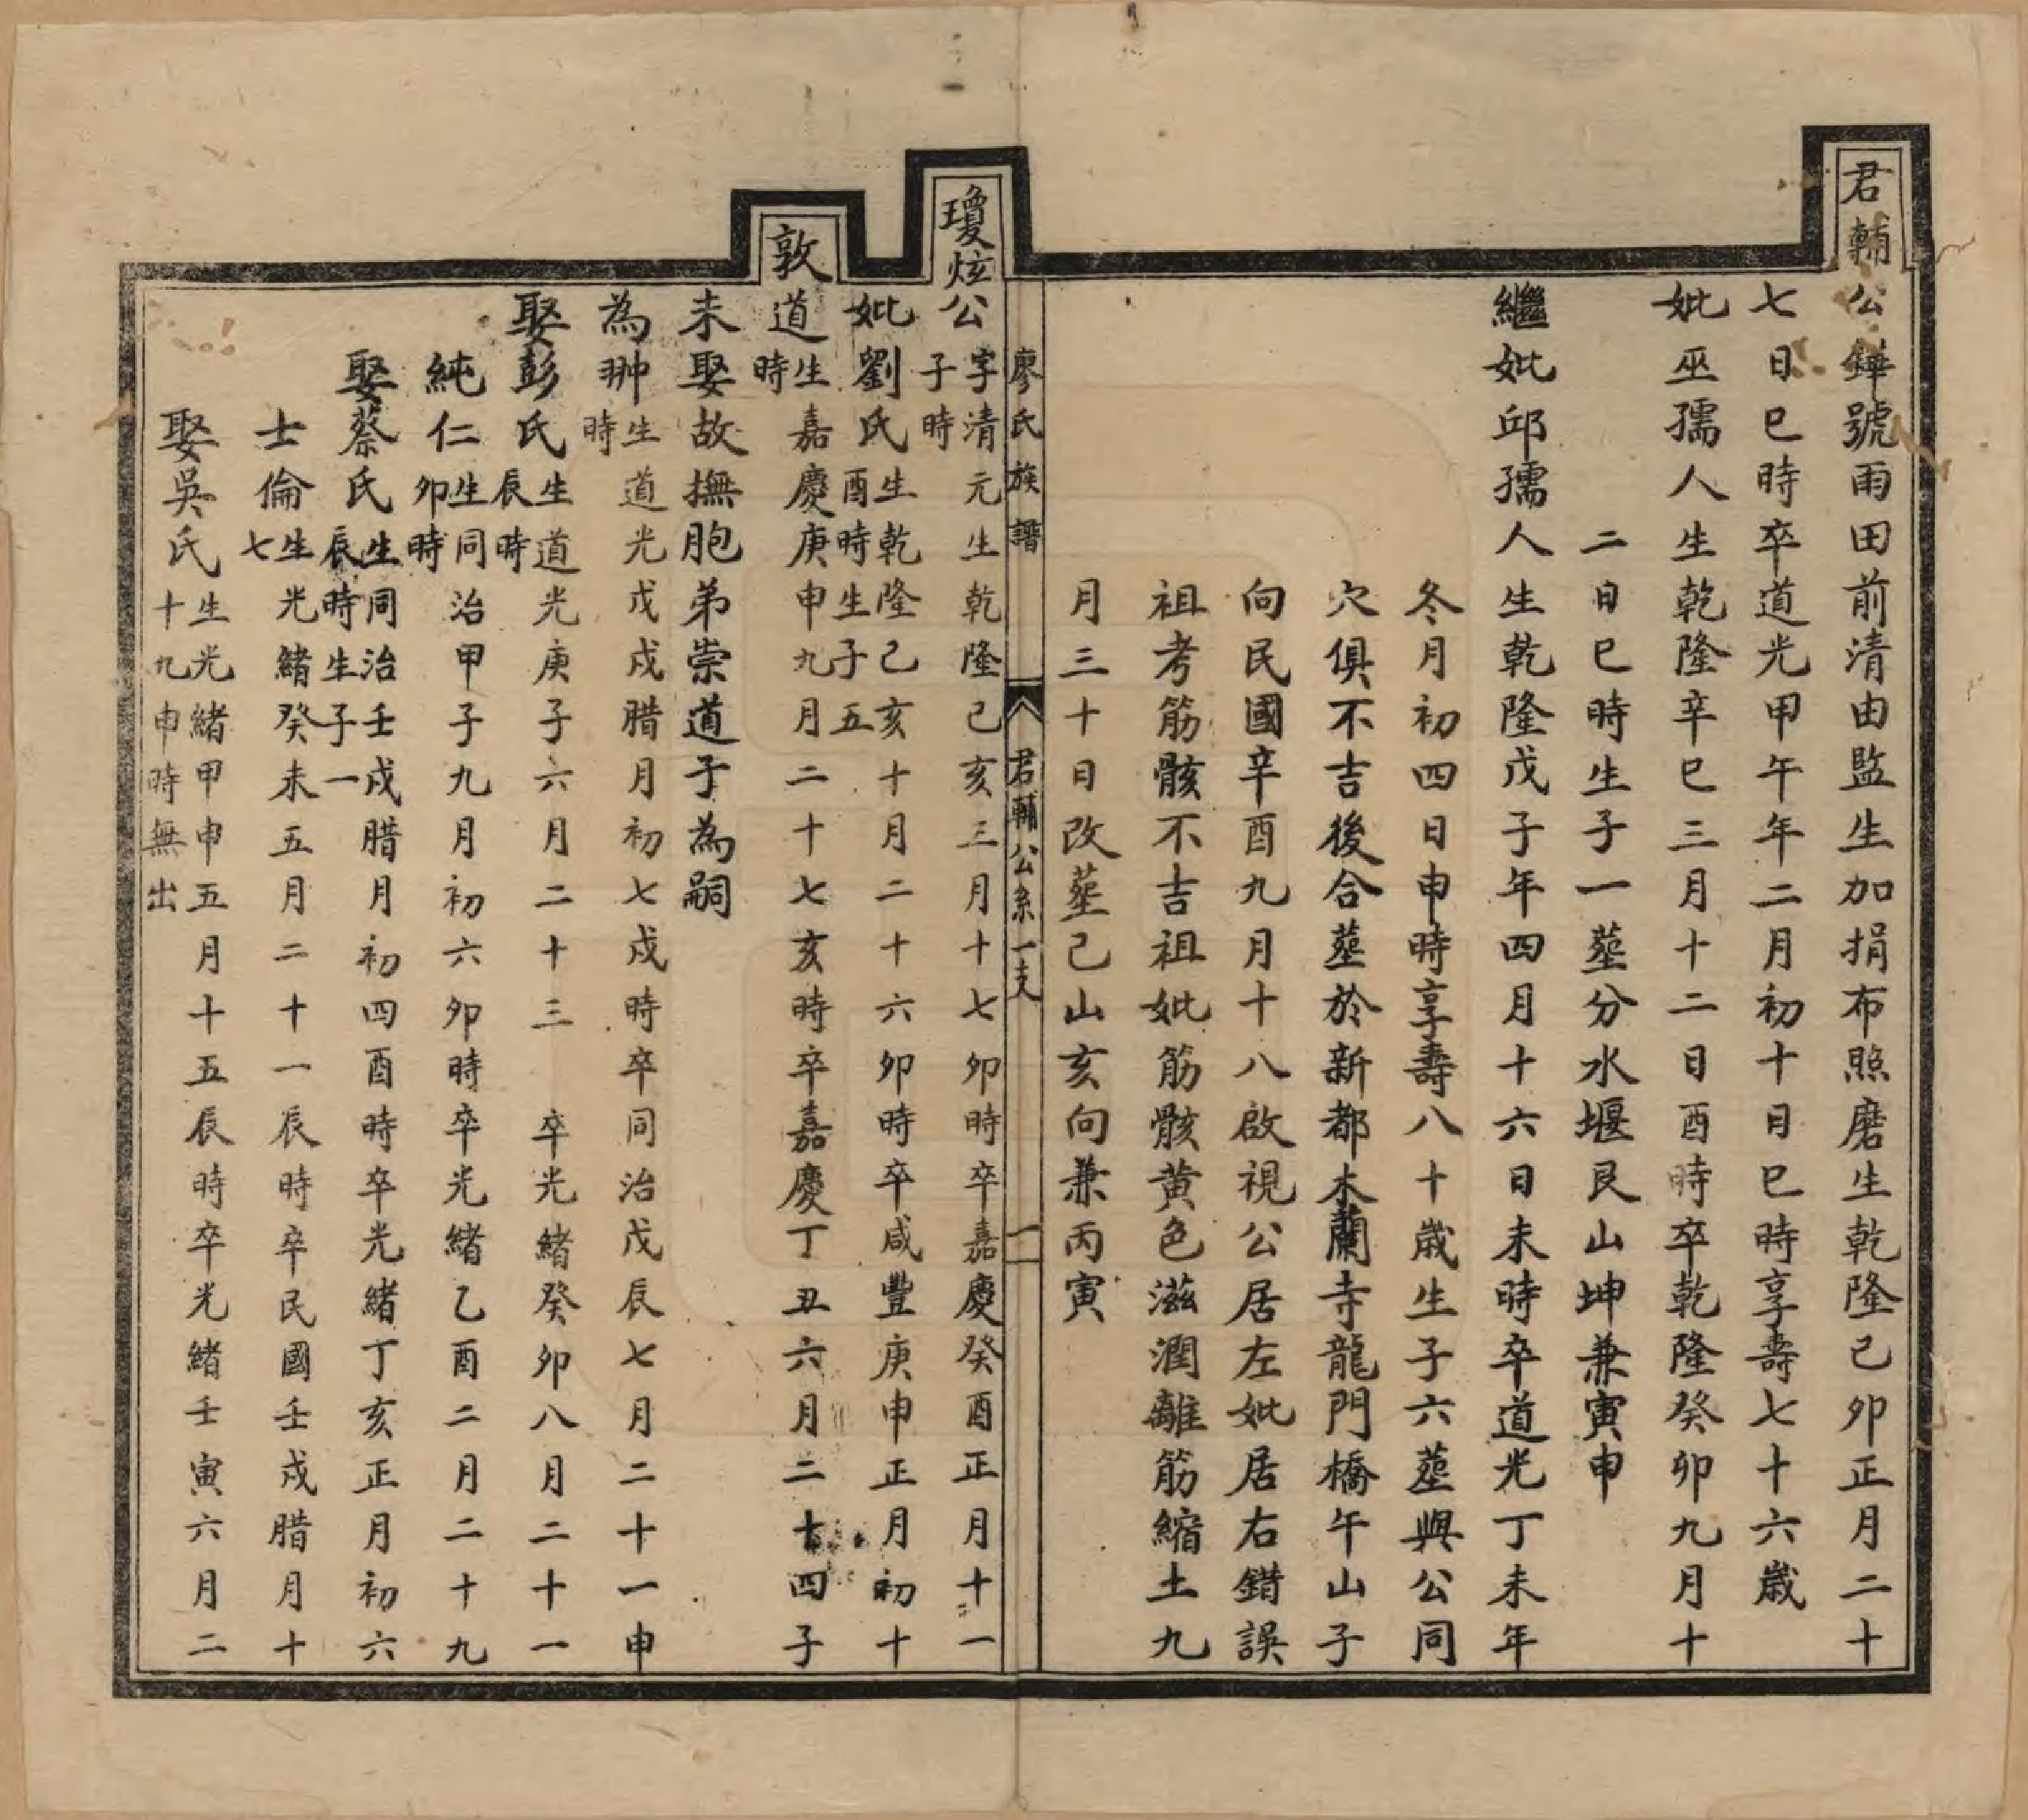 君輔公鏵號雨田前清由監生加捐布照磨生乾隆己卯正月二十
七日巳時卒道光甲午年二月初十日巳時享壽七十六歲
妣巫孺人生乾隆辛巳三月十二日酉時卒乾隆癸卯九月十
二日巳時生子一塟分水堰艮山坤兼寅申
繼妣邱孺人生乾隆戊子年四月十六日未時卒道光丁未年
冬月初四日申時享壽八十歲生子六塟與公同
穴俱不吉後合塟於新都木蘭寺龍門橋午山子
向民國辛酉九月十八啟視公居左妣居右錯誤
祖考筋骸不吉祖妣筋骸黄色滋潤離筋縮土九
月三十日改塟己山亥向兼丙寅
廖氏族譜 君輔公系一支 一
瓊炫公字清元生乾隆己亥三月十七卯時卒嘉慶癸酉正月十一
子時
妣劉氏生乾隆己亥十月二十六卯時卒咸豐庚申正月初十
酉時生子五
敦道生嘉慶庚申九月二十七亥時卒嘉慶丁丑六月二十四子
時
未娶故撫胞弟崇道子為嗣
為翀生道光戊戌腊月初七戌時卒同治戊辰七月二十一申
時
娶彭氏生道光庚子六月二十三 卒光緒癸卯八月二十一
辰時
純仁生同治甲子九月初六卯時卒光緒乙酉二月二十九
卯時
娶蔡氏生同治壬戌腊月初四酉時卒光緒丁亥正月初六
辰時生子一
士倫生光緒癸未五月二十一辰時卒民國壬戌腊月十
七
娶吳氏生光緒甲申五月十五辰時卒光緒壬寅六月二
十九申時無出